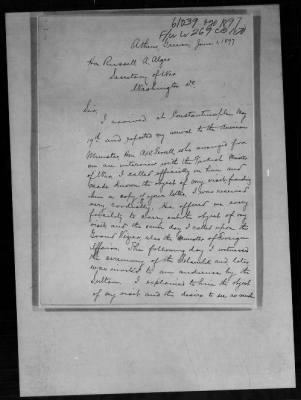 61039 AGO 1897
F/w W 269 CB 1870
Athens Greece, June 1, 1897
Hon Russell A. Alger
Secretary of War
Washington DC
Sir,
I arrived at Constantinople May
19th and reported my arrival to the American
Minister, Hon A W Terrell who arranged for
me an interview with the Turkish Minister
of War. I called officially on him and
made known the object of my visit, handing
him a copy of your letter. I was received
very cordially. He offered me every
facility to carry out the object of my
visit and the same day I called upon the
Grand Vizier also the Minister of Foreign
Affairs. The following day I witnessed
the ceremony of the Selamlik and later
was invited to an audience by the
Sultan. I explained to him the object
of my visit and the desire to see as much